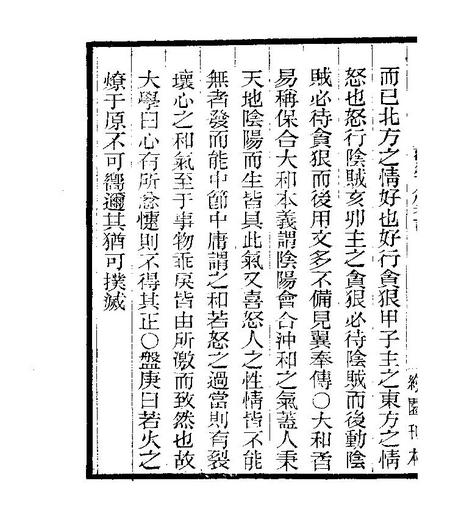 而已北方之情好也好行貪狠甲子主之東方之情
怒也怒行陰賊亥卯主之貪狠必待陰賊而後動陰
賊必待貪狠而後用文多不備見翼奉傳〇大和者
易稱保合大和本義謂陰陽會合沖和之氣蓋人秉
天地陰陽而生皆具此氣又喜怒人之性情皆不能
無者發而能中節中庸謂之和若怒之過當則有裂
壞心之和氣至于事物乖戾皆由所激而致然也故
大學曰心有所忿懥則不得其正〇盤庚曰若火之
燎于原不可嚮邇其猶可撲滅